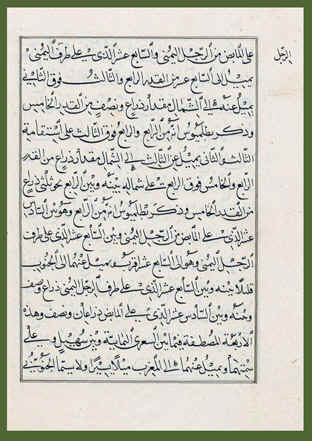 الرجل
على المابض من الرجل اليمنى والسابع عشر الذي على طرف اليمنى
يميل الى السابع عشر من القدر الرابع والثالث فوق الثاني
يميل عنه الى الشمال مقدار ذراع ونصف من القدر الخامس
وذكر بطلميوس انه من الرابع والرابع فوق الثالث على استقامة
الثالث والثاني يميل عن الثالث الى الشمال مقدار ذراع من القدر
الرابع والخامس فوق الرابع على شماله بينه وبين الرابع نحو ثلثي ذراع
من القدر الخامس وذكر بطلميوس انه من الرابع وهو بين السادس
عشر الذي على المابض من الرجل اليمنى وبين السابع عشر الذي على طرف
الرجل اليمنى وهو الى السابع عشر اقرب ويميل عنهما الى الجنوب
قليلا بينه وبين السابع عشر الذي على طرف الرجل اليمنى ذراع ونصف
وبينه وبين السادس عشر الذي على المابض ذراعان ونصف وهذه
الاربعة المصطفة فيما بين الشعرى اليمانية وبين سهيل وعلى
سمتهما ويميل عنهما الى المغرب ميلا يسيرا ولا سيما الجنوبيين